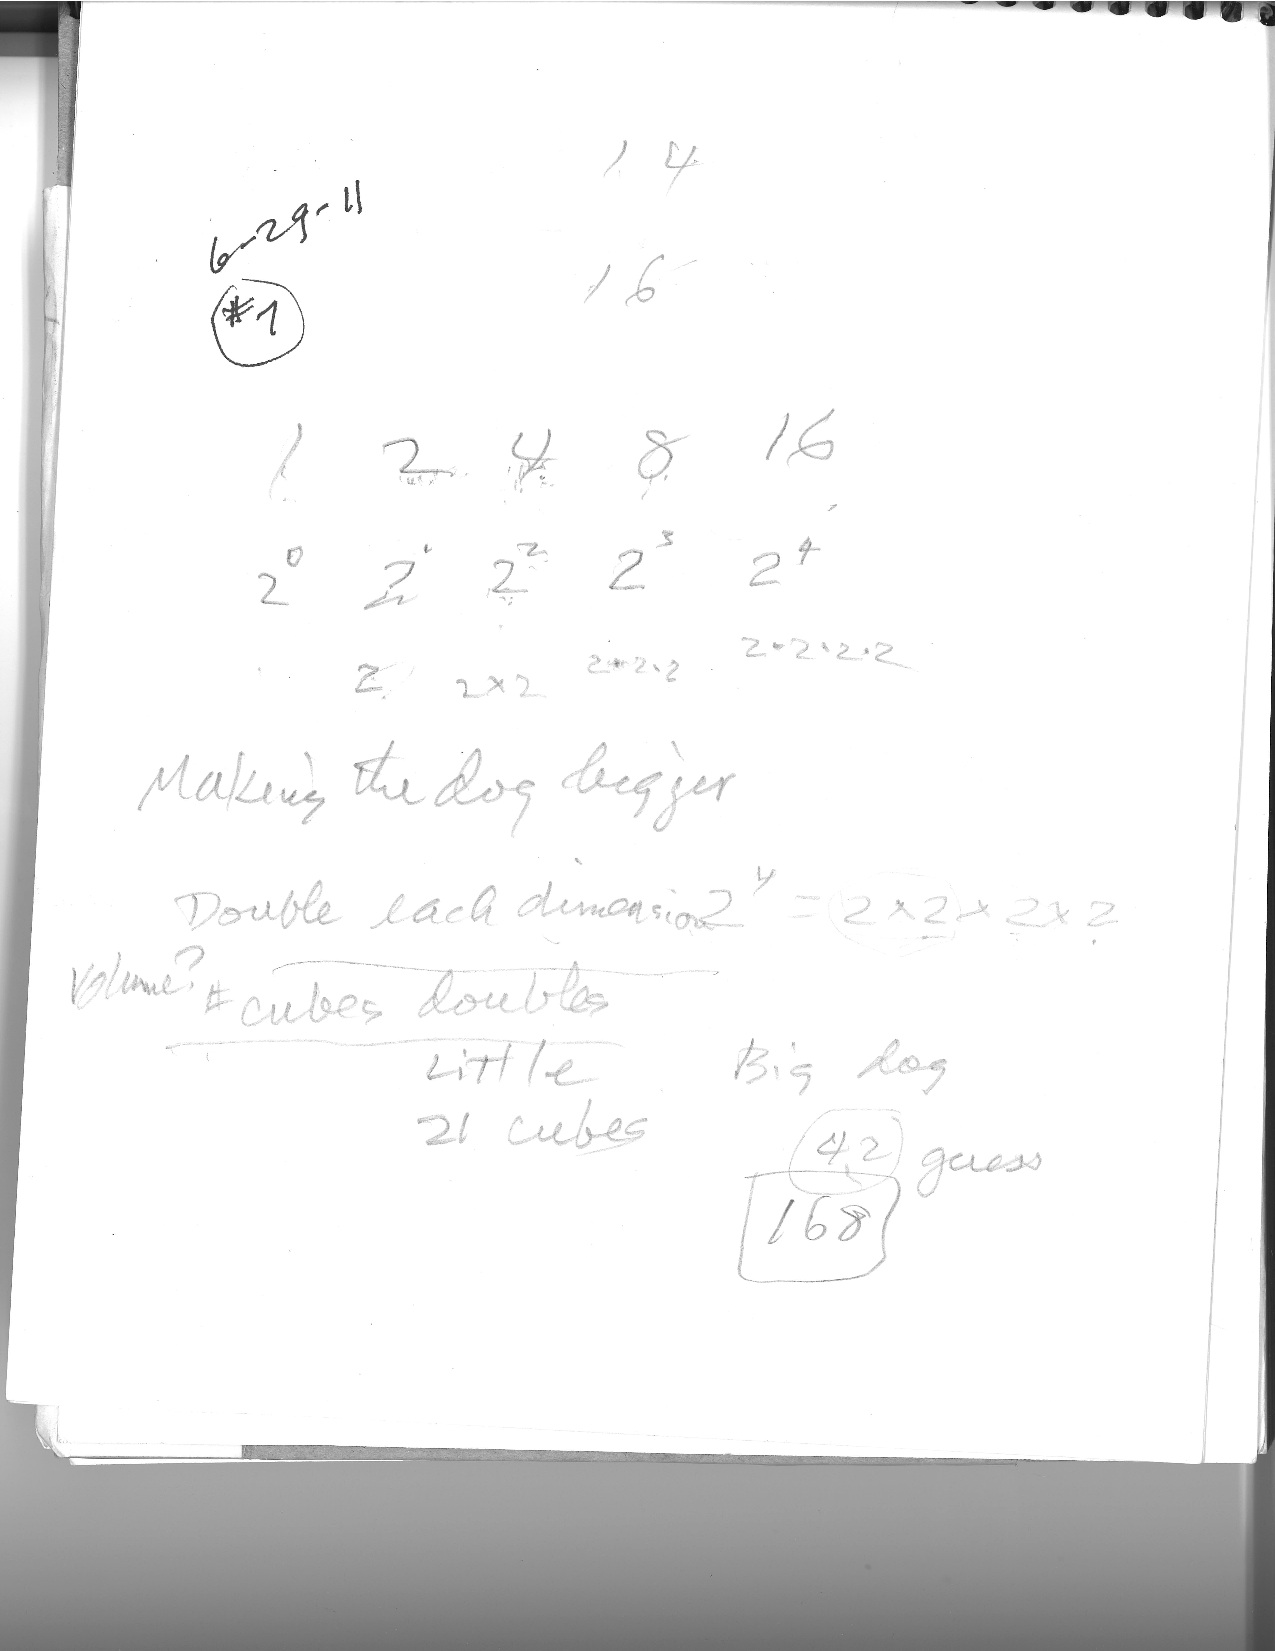 1 4
6-29-11
16
#1
1 2 4 8 16
2⁰ 2¹ 2² 2³ 2⁴
2 2×2 2·2·2 2·2·2·2
Making the dog bigger
Double each dimension 2⁴ = 2×2×2×2
Volume? # cubes doubles
Little Big dog
21 cubes 42 guess
168